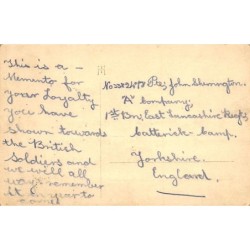 This is a -
Memento for
your Loyalty
you have
shown towards
the British
Soldiers and
we will all
ways remember
it
Pte, John
"A" Company,
1st Bn, East Lancashire Regt,
Catterick-Camp.
Yorkshire.
England.